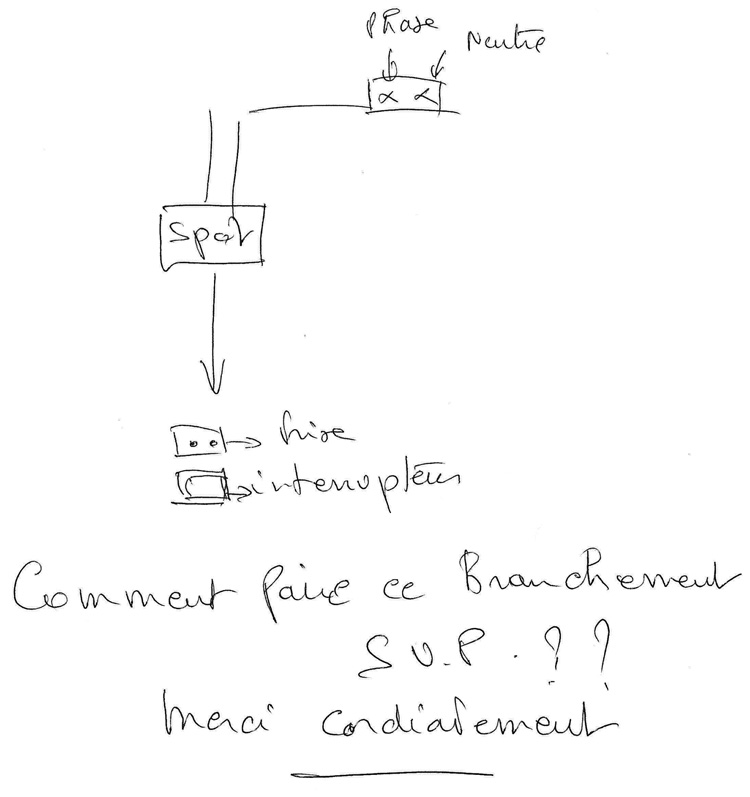 Phase
Neutre
Spot
Prise
interrupteur
Comment faire ce Branchement
S.V.P. ??
Merci cordialement